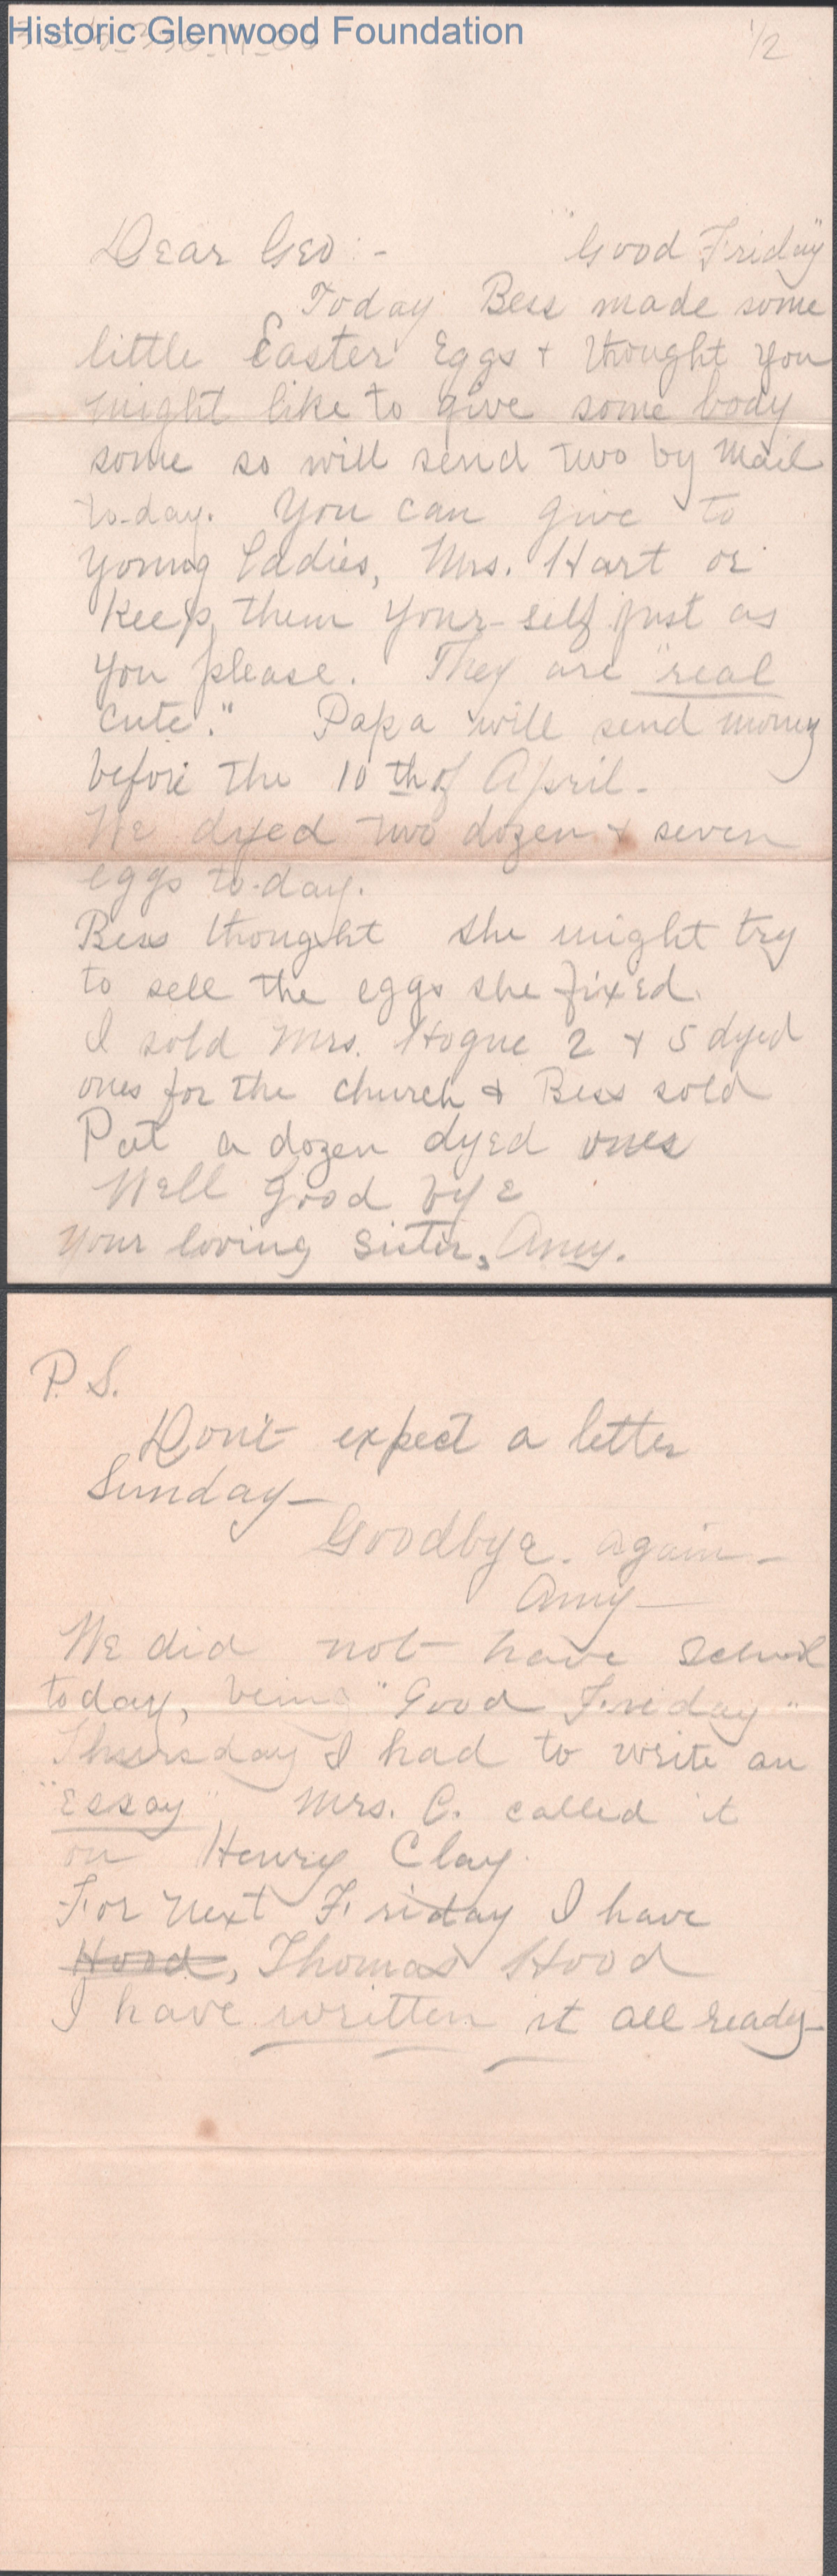 Historic Glenwood Foundation
1/2
Dear Geo :- "Good Friday"
Today Bess made some
little Easter Eggs + thought you
might like to give some body
some so will send two by mail
to-day. You can give to
young ladies, Mrs. Hart or
keep them your-self just as
you please. They are "real
cute." Papa will send money
before the 10th of April.
We dyed two dozen + seven
eggs to-day.
Bess thought she might try
to sell the eggs she fixed.
I sold Mrs. Hogue 2 + 5 dyed
ones for the church + Bess sold
Pat a dozen dyed ones
Well good bye
Your loving sister, Amy.
P.S.
Don't expect a letter
Sunday—
Goodbye. again—
Amy—
We did not have school
today, being "Good Friday"
Thursday I had to write an
"Essay" Mrs. C. called it
on Henry Clay.
For next Friday I have
Hood, Thomas Hood
I have written it all ready—